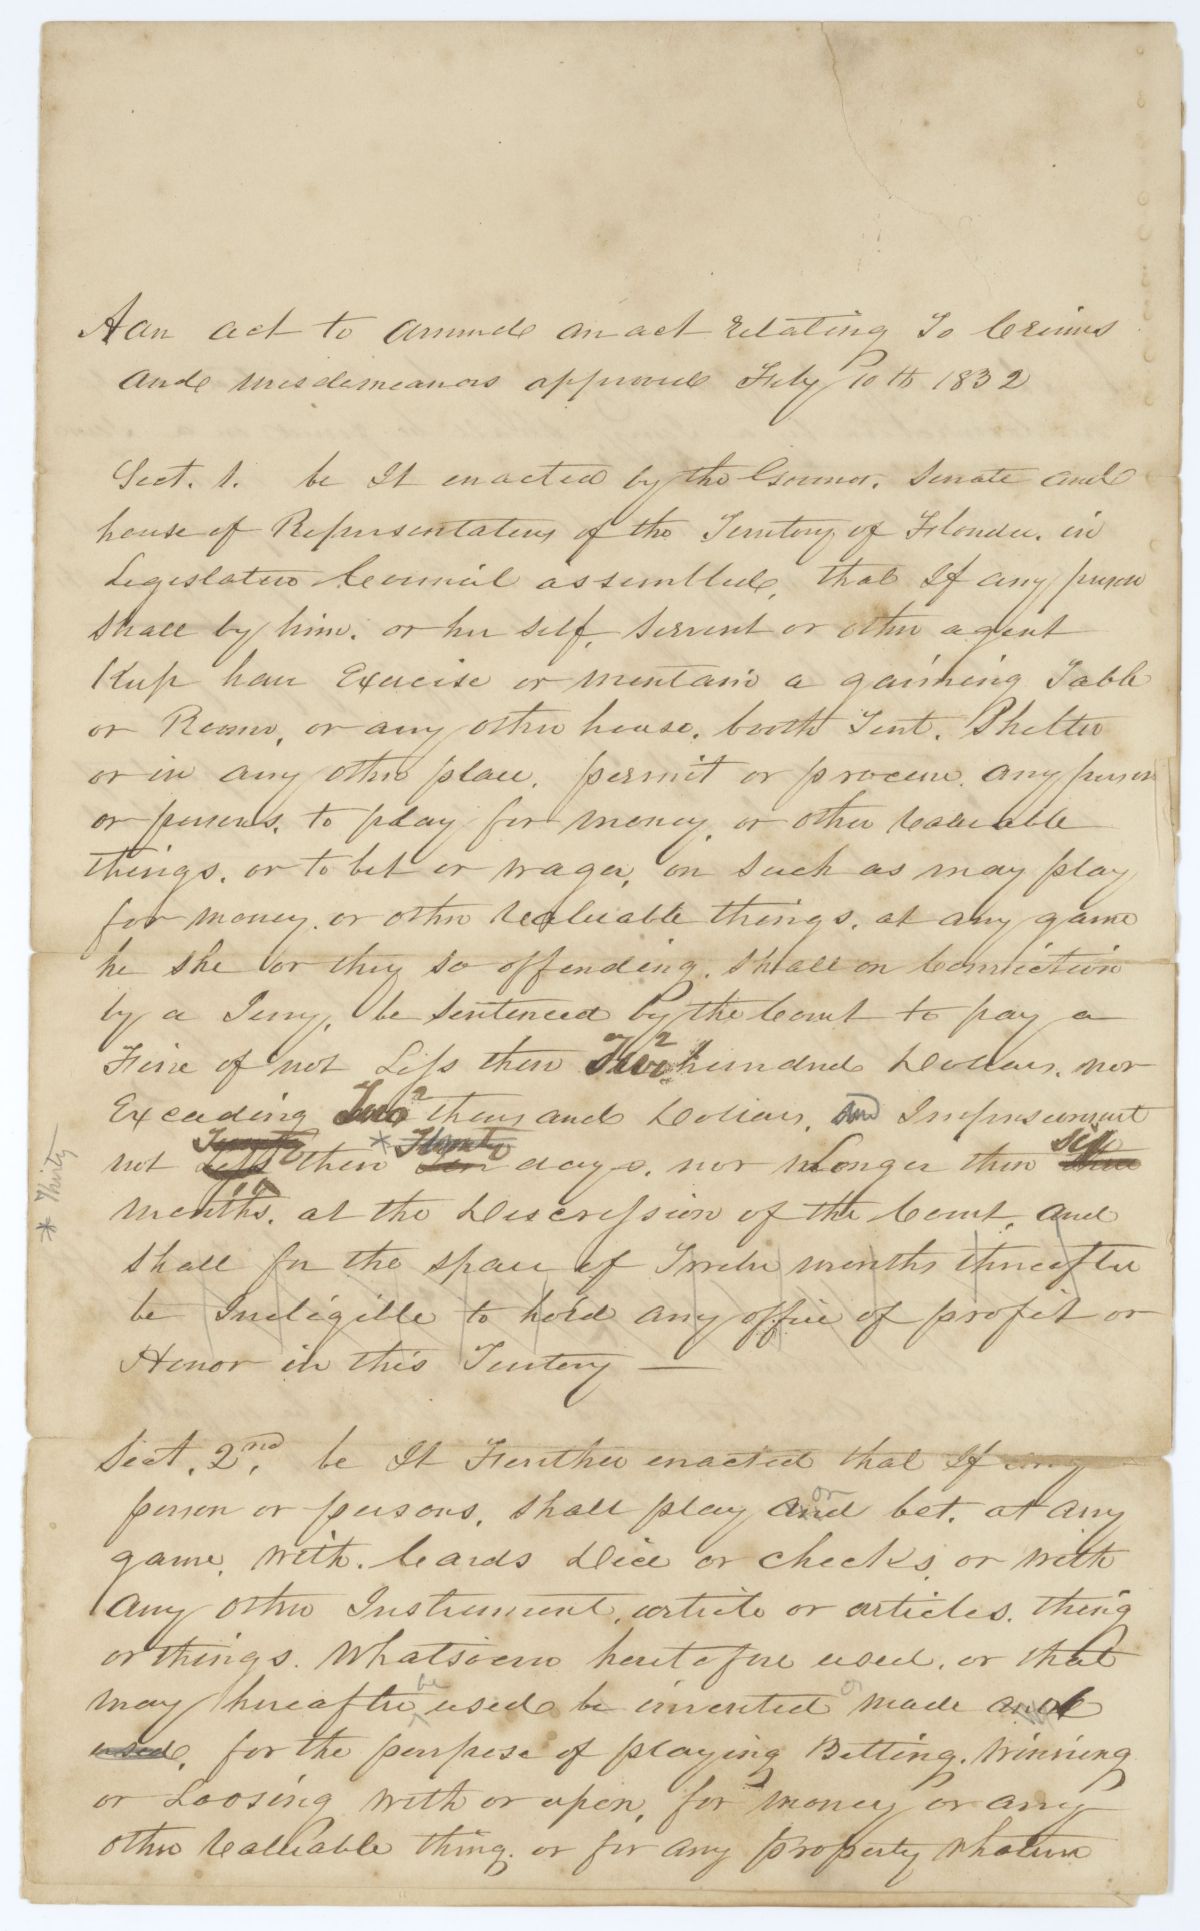 A an act to amende an act relating To Crimes
and misdemeanors approved Feby 10th 1832
Sect. 1. be It enacted by the Governor. Senate and
house of Representatives of the Territory of Florida. in
Legislative Council assembled, that If any person
shall by him. or her self, servent or other agent
Keep have Exercise or mentain a gaiming Table
or Room, or any other house, booth Tent. Shelter
or in any other place. permit or procure any person
or persons, to play for money, or other valuable
things. or to bet or wager, on such as may play
for money. or other valuable things. at any game
he she or they so offending. shall on Conviction
by a Jury, be sentenced by the Court to pay a
Fine of not Less then Two 2 hundred Dollars, nor
Exceding Two 2 thousand Dollars, and Imprisonment
Twenty
not Less then * Twenty Ten days, nor Longer then six three
* Thirty
months, at the Discression of the Court, and
shall for the space of Twelve months thereafter
be Ineligible to hold any office of profit or
Honor in this Teritory —
Sect. 2nd, be It Further enacted that If any
person or persons, shall play and or bet, at any
game, with. Cards Dice or checks, or with
any other Instrument, article or articles. thing
or things. whatsoever heretofore used, or that
may hereafter be used be invented or made and
used, for the purpose of playing Betting. Winning
or Loosing with or upon, for money or any
other valuable thing. or for any property whatever